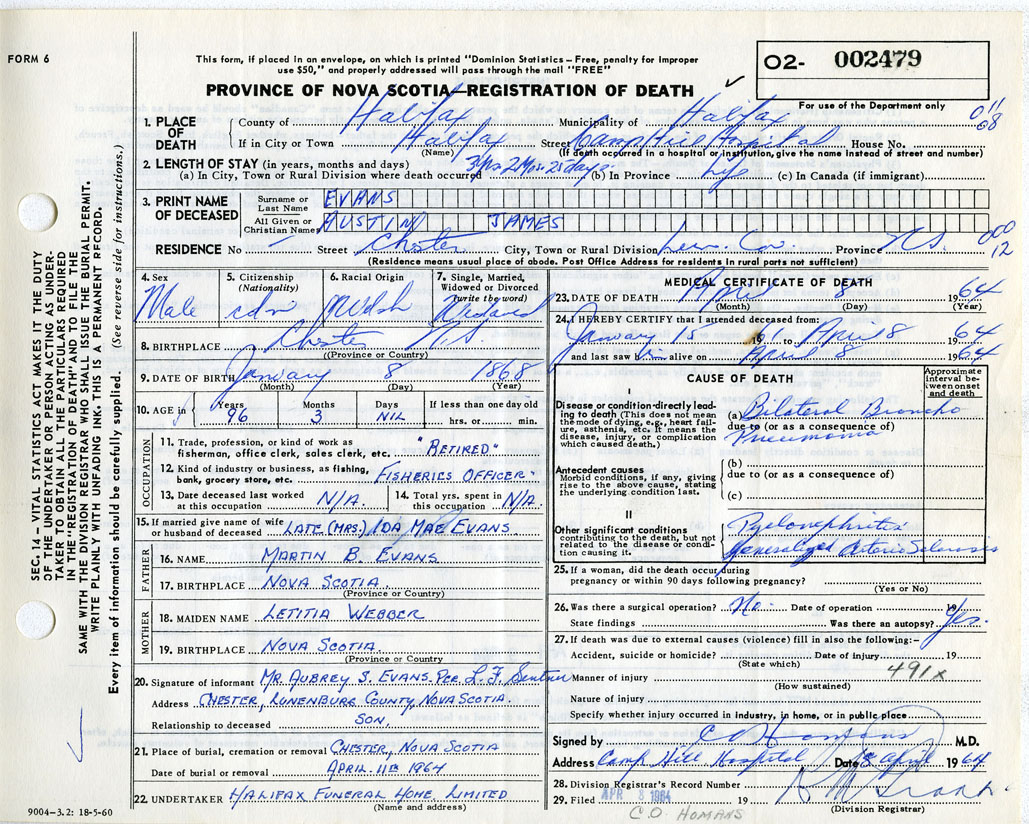 FORM 6
This form, if placed in an envelope, on which is printed "Dominion Statistics - Free, penalty for improper
use $50," and properly addressed will pass through the mail "FREE"
PROVINCE OF NOVA SCOTIA—REGISTRATION OF DEATH
O2- 002479
For use of the Department only
SEC. 14 - VITAL STATISTICS ACT MAKES IT THE DUTY
OF THE UNDERTAKER OR PERSON ACTING AS UNDER-
TAKER TO OBTAIN ALL THE PARTICULARS REQUIRED
IN THE "REGISTRATION OF DEATH" AND TO FILE THE
SAME WITH THE DIVISION REGISTRAR WHO SHALL ISSUE THE BURIAL PERMIT.
WRITE PLAINLY WITH UNFADING INK. THIS IS A PERMANENT RECORD.
Every item of information should be carefully supplied. (See reverse side for instructions.)
1. PLACE OF DEATH County of Halifax Municipality of Halifax
If in City or Town Halifax Street Camp Hill Hospital House No.
(Name) (If death occurred in a hospital or institution, give the name instead of street and number)
2. LENGTH OF STAY (in years, months and days)
(a) In City, Town or Rural Division where death occurred 3 yrs 2 Mos 25 days (b) In Province Life (c) In Canada (if immigrant)
3. PRINT NAME OF DECEASED Surname or Last Name EVANS
All Given or Christian Names AUSTIN JAMES
RESIDENCE No - Street Chester City, Town or Rural Division Lun. Co. Province N.S. 000 12
(Residence means usual place of abode. Post Office Address for residents in rural parts not sufficient)
4. Sex Male
5. Citizenship (Nationality) cdn
6. Racial Origin Welsh
7. Single, Married, Widowed or Divorced (write the word) Widowed
8. BIRTHPLACE Chester N.S.
(Province or Country)
9. DATE OF BIRTH January 8 1868
(Month) (Day) (Year)
10. AGE in Years 96 Months 3 Days NIL If less than one day old hrs. or min.
OCCUPATION
11. Trade, profession, or kind of work as
fisherman, office clerk, sales clerk, etc. "RETIRED"
12. Kind of industry or business, as fishing,
bank, grocery store, etc. FISHERIES OFFICER
13. Date deceased last worked at this occupation N/A.
14. Total yrs. spent in this occupation N/A.
15. If married give name of wife
or husband of deceased LATE (MRS.) IDA MAE EVANS
FATHER
16. NAME MARTIN B. EVANS
17. BIRTHPLACE NOVA SCOTIA
(Province or Country)
MOTHER
18. MAIDEN NAME LETITIA WEBBER
19. BIRTHPLACE NOVA SCOTIA
(Province or Country
20. Signature of informant MR. AUBREY S. EVANS. PER. L. F.
Address CHESTER, LUNENBURG COUNTY, NOVA SCOTIA.
Relationship to deceased SON.
21. Place of burial, cremation or removal CHESTER, NOVA SCOTIA
Date of burial or removal APRIL 11th 1964
22. UNDERTAKER HALIFAX FUNERAL HOME LIMITED
(Name and address)
9004-3.2: 18-5-60
MEDICAL CERTIFICATE OF DEATH
23. DATE OF DEATH April 8 1964
(Month) (Day) (Year)
24. I HEREBY CERTIFY that I attended deceased from:
January 15 1961 to April 8 1964
and last saw him alive on April 8 1964
CAUSE OF DEATH
Approximate interval between onset and death
I
Disease or condition directly lead-
ing to death (This does not mean
the mode of dying, e.g., heart fail-
ure, asthenia, etc. It means the
disease, injury, or complication
which caused death.)
(a) Bilateral Broncho
due to (or as a consequence of)
Pneumonia
Antecedent causes
Morbid conditions, if any, giving
rise to the above cause, stating
the underlying condition last.
(b)
due to (or as a consequence of)
(c)
II
Other significant conditions
contributing to the death, but not
related to the disease or condi-
tion causing it.
Pyelonephritis
Generalized Arterio Sclerosis
25. If a woman, did the death occur during
pregnancy or within 90 days following pregnancy?
(Yes or No)
26. Was there a surgical operation? No. Date of operation 19
State findings Was there an autopsy? Yes.
27. If death was due to external causes (violence) fill in also the following:-
Accident, suicide or homicide? Date of injury 19
(State which)
Manner of injury 491x
(How sustained)
Nature of injury
Specify whether injury occurred in industry, in home, or in public place
Signed by C O Homans M.D.
Address Camp Hill Hospital Date 8 April 1964
28. Division Registrar's Record Number
29. Filed APR 8 1964 19
(Division Registrar)
C.O HOMANS